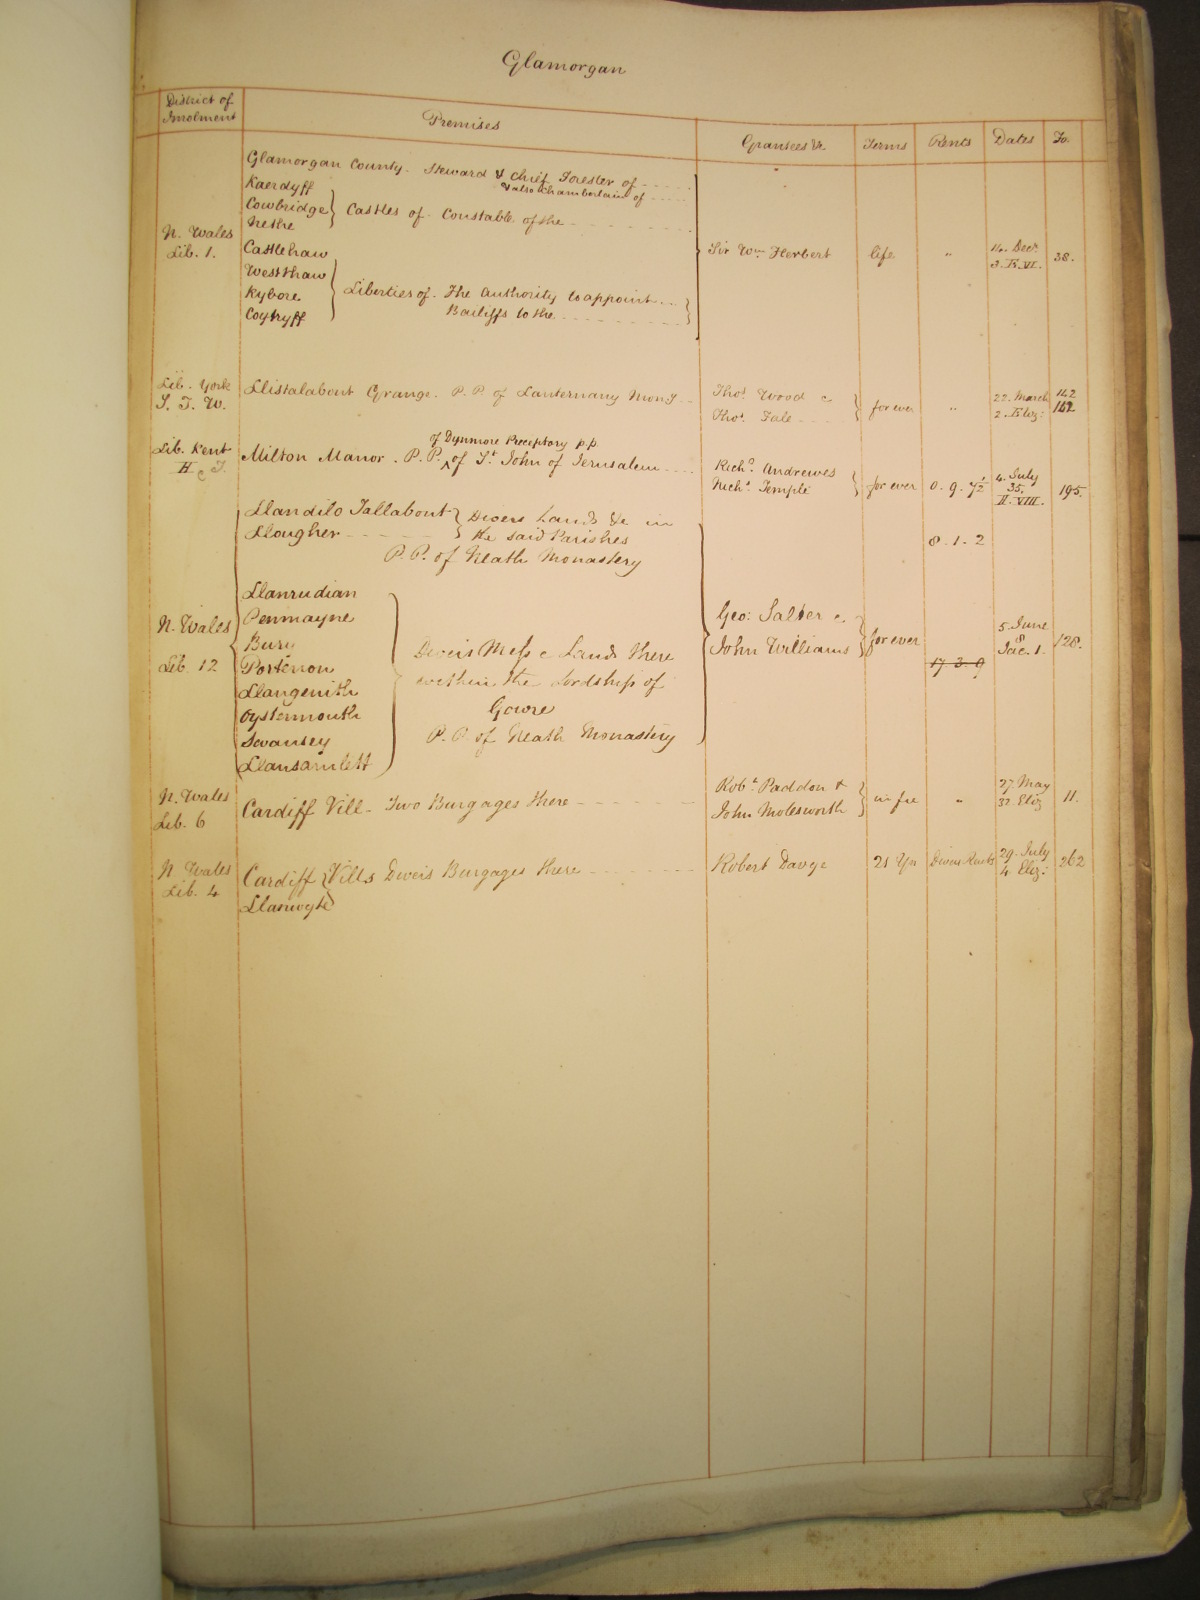 Glamorgan
District of Inrolment
Premises
Grantees &c
Terms
Rents
Dates
Fo.
N. Wales
Lib. 1.
Glamorgan County. Steward & chief Forester of
& also Chamberlain of
Kaerdyff
Cowbridge } Castles of. Constable of the
Nethe
Castlehaw
Westhaw
Kybore } Liberties of. The Authority to appoint
Coytryff Bailiffs to the
Sir Wm Herbert
life
"
14. Decr
3. E. VI.
38.
Lib. York
S. T. W.
Llistalabout Grange. P. P. of Lanternany Mony
Thos. Wood &
Thos. Tale
for ever
"
22. March
2. Eliz:
142
Lib. Kent
H & T.
of Dynmore Preceptory p.p.
Milton Manor. P. P. of St. John of Jerusalem
Richd. Andrewes
Nichs. Temple
for ever
0. 9. 7½
4. July
35.
H. VIII.
195.
N. Wales
Lib. 12
Llandilo Tallabout } Divers Lands &c in
Llougher the said Parishes
P. P. of Neath Monastery
8. 1. 2
Llanrudian
Penmayne
Bury
Portenon
Llangenith
Oystermouth
Swansey
Llansamlett
Divers Mess & Lands there
within the Lordship of
Gowre
P. P. of Neath Monastery
Geo: Salter &
John Williams
for ever
17. 3. 9
5. June
8
Jac. 1.
128.
N. Wales
Lib. 6
Cardiff Vill. Two Burgages there
Robt. Paddon &
John Molesworth
in fee
"
27. May
32. Eliz
11.
N. Wales
Lib. 4
Cardiff } Vills Divers Burgages there
Llanwyte
Robert Davge
21 Yrs
Divers Rents
29. July
4 Eliz:
262